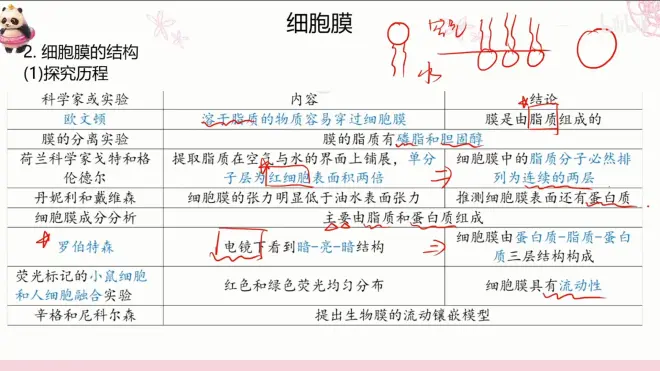 细胞膜
空气
水
2. 细胞膜的结构
(1)探究历程
科学家或实验 内容 结论
欧文顿 溶于脂质的物质容易穿过细胞膜 膜是由脂质组成的
膜的分离实验 膜的脂质有磷脂和胆固醇
荷兰科学家戈特和格伦德尔 提取脂质在空气与水的界面上铺展，单分子层为红细胞表面积两倍 细胞膜中的脂质分子必然排列为连续的两层
丹妮利和戴维森 细胞膜的张力明显低于油水表面张力 推测细胞膜表面还有蛋白质
细胞膜成分分析 主要由脂质和蛋白质组成
罗伯特森 电镜下看到暗-亮-暗结构 细胞膜由蛋白质-脂质-蛋白质三层结构构成
荧光标记的小鼠细胞和人细胞融合实验 红色和绿色荧光均匀分布 细胞膜具有流动性
辛格和尼科尔森 提出生物膜的流动镶嵌模型